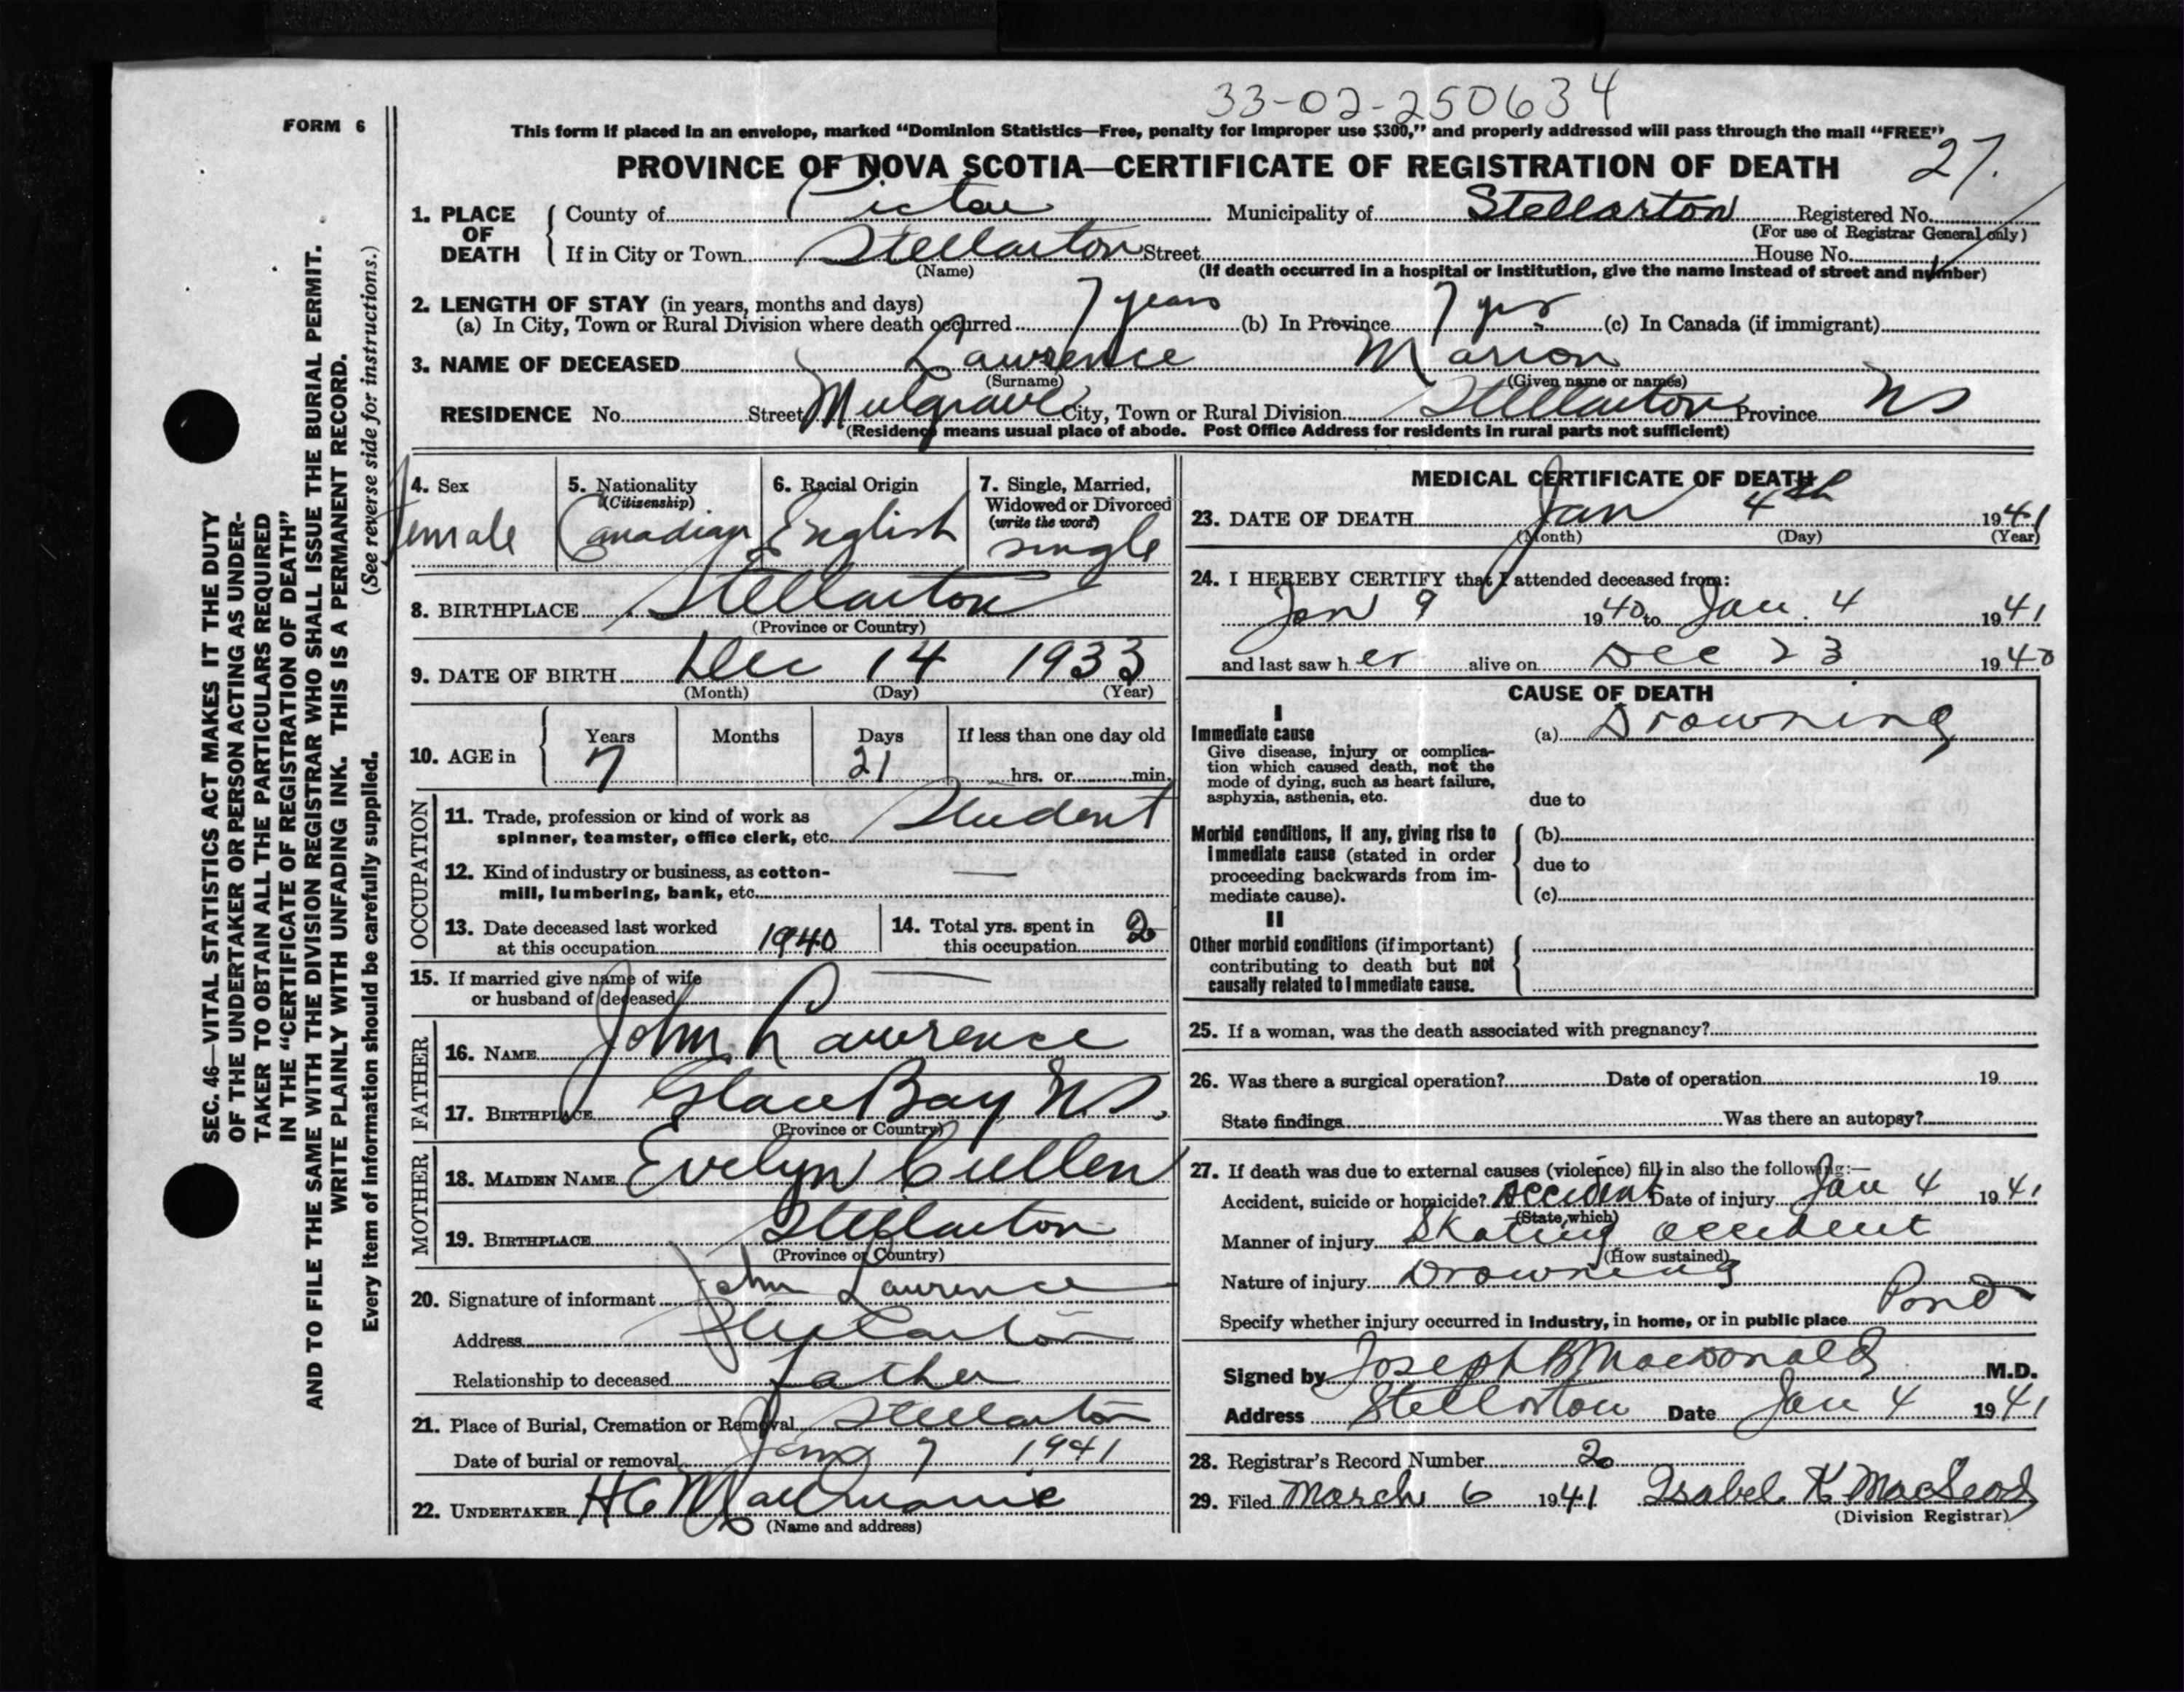 33-02-250634
FORM 6
This form if placed in an envelope, marked "Dominion Statistics—Free, penalty for improper use $300," and properly addressed will pass through the mail "FREE"
PROVINCE OF NOVA SCOTIA—CERTIFICATE OF REGISTRATION OF DEATH
27.
1. PLACE OF DEATH
County of Pictou Municipality of Stellarton Registered No.
(For use of Registrar General only)
If in City or Town Stellarton Street House No.
(Name) (If death occurred in a hospital or institution, give the name instead of street and number)
2. LENGTH OF STAY (in years, months and days)
(a) In City, Town or Rural Division where death occurred 7 years (b) In Province 7 yrs. (c) In Canada (if immigrant)
3. NAME OF DECEASED Lawrence Marion
(Surname) (Given name or names)
RESIDENCE No. Street Mulgrave City, Town or Rural Division Stellarton Province NS
(Residence means usual place of abode. Post Office Address for residents in rural parts not sufficient)
4. Sex
female
5. Nationality
(Citizenship)
Canadian
6. Racial Origin
English
7. Single, Married,
Widowed or Divorced
(write the word)
single
8. BIRTHPLACE Stellarton
(Province or Country)
9. DATE OF BIRTH Dec 14 1933
(Month) (Day) (Year)
10. AGE in
Years Months Days If less than one day old
7 21 hrs. or min.
OCCUPATION
11. Trade, profession or kind of work as
spinner, teamster, office clerk, etc. Student
12. Kind of industry or business, as cotton-
mill, lumbering, bank, etc. —
13. Date deceased last worked
at this occupation 1940
14. Total yrs. spent in
this occupation 2
15. If married give name of wife
or husband of deceased —
FATHER
16. NAME John Lawrence
17. BIRTHPLACE Glace Bay N.S.
(Province or Country)
MOTHER
18. MAIDEN NAME Evelyn Cullen
19. BIRTHPLACE Stellarton
(Province or Country)
20. Signature of informant John Lawrence
Address Stellarton
Relationship to deceased Father
21. Place of Burial, Cremation or Removal Stellarton
Date of burial or removal Jany 7 1941
22. UNDERTAKER H G
(Name and address)
MEDICAL CERTIFICATE OF DEATH
23. DATE OF DEATH Jan 4th 1941
(Month) (Day) (Year)
24. I HEREBY CERTIFY that I attended deceased from:
Jan 9 1940 to Jan. 4 1941
and last saw her alive on Dec 23 1940
CAUSE OF DEATH
I
Immediate cause
Give disease, injury or complica-
tion which caused death, not the
mode of dying, such as heart failure,
asphyxia, asthenia, etc.
(a) Drowning
due to
Morbid conditions, if any, giving rise to
immediate cause (stated in order
proceeding backwards from im-
mediate cause).
(b)
due to
(c)
II
Other morbid conditions (if important)
contributing to death but not
causally related to immediate cause.
25. If a woman, was the death associated with pregnancy?
26. Was there a surgical operation? Date of operation 19
State findings Was there an autopsy?
27. If death was due to external causes (violence) fill in also the following:—
Accident, suicide or homicide? Accident Date of injury Jan 4 1941
(State which)
Manner of injury Skating accident
(How sustained)
Nature of injury Drowning
Specify whether injury occurred in industry, in home, or in public place Pond
Signed by Joseph B Macdonald M.D.
Address Stellarton Date Jan 4 1941
28. Registrar's Record Number 2
29. Filed March 6 1941 Isabel K. MacLeod
(Division Registrar)
SEC. 46—VITAL STATISTICS ACT MAKES IT THE DUTY
OF THE UNDERTAKER OR PERSON ACTING AS UNDER-
TAKER TO OBTAIN ALL THE PARTICULARS REQUIRED
IN THE "CERTIFICATE OF REGISTRATION OF DEATH"
AND TO FILE THE SAME WITH THE DIVISION REGISTRAR WHO SHALL ISSUE THE BURIAL PERMIT.
WRITE PLAINLY WITH UNFADING INK. THIS IS A PERMANENT RECORD.
Every item of information should be carefully supplied. (See reverse side for instructions.)